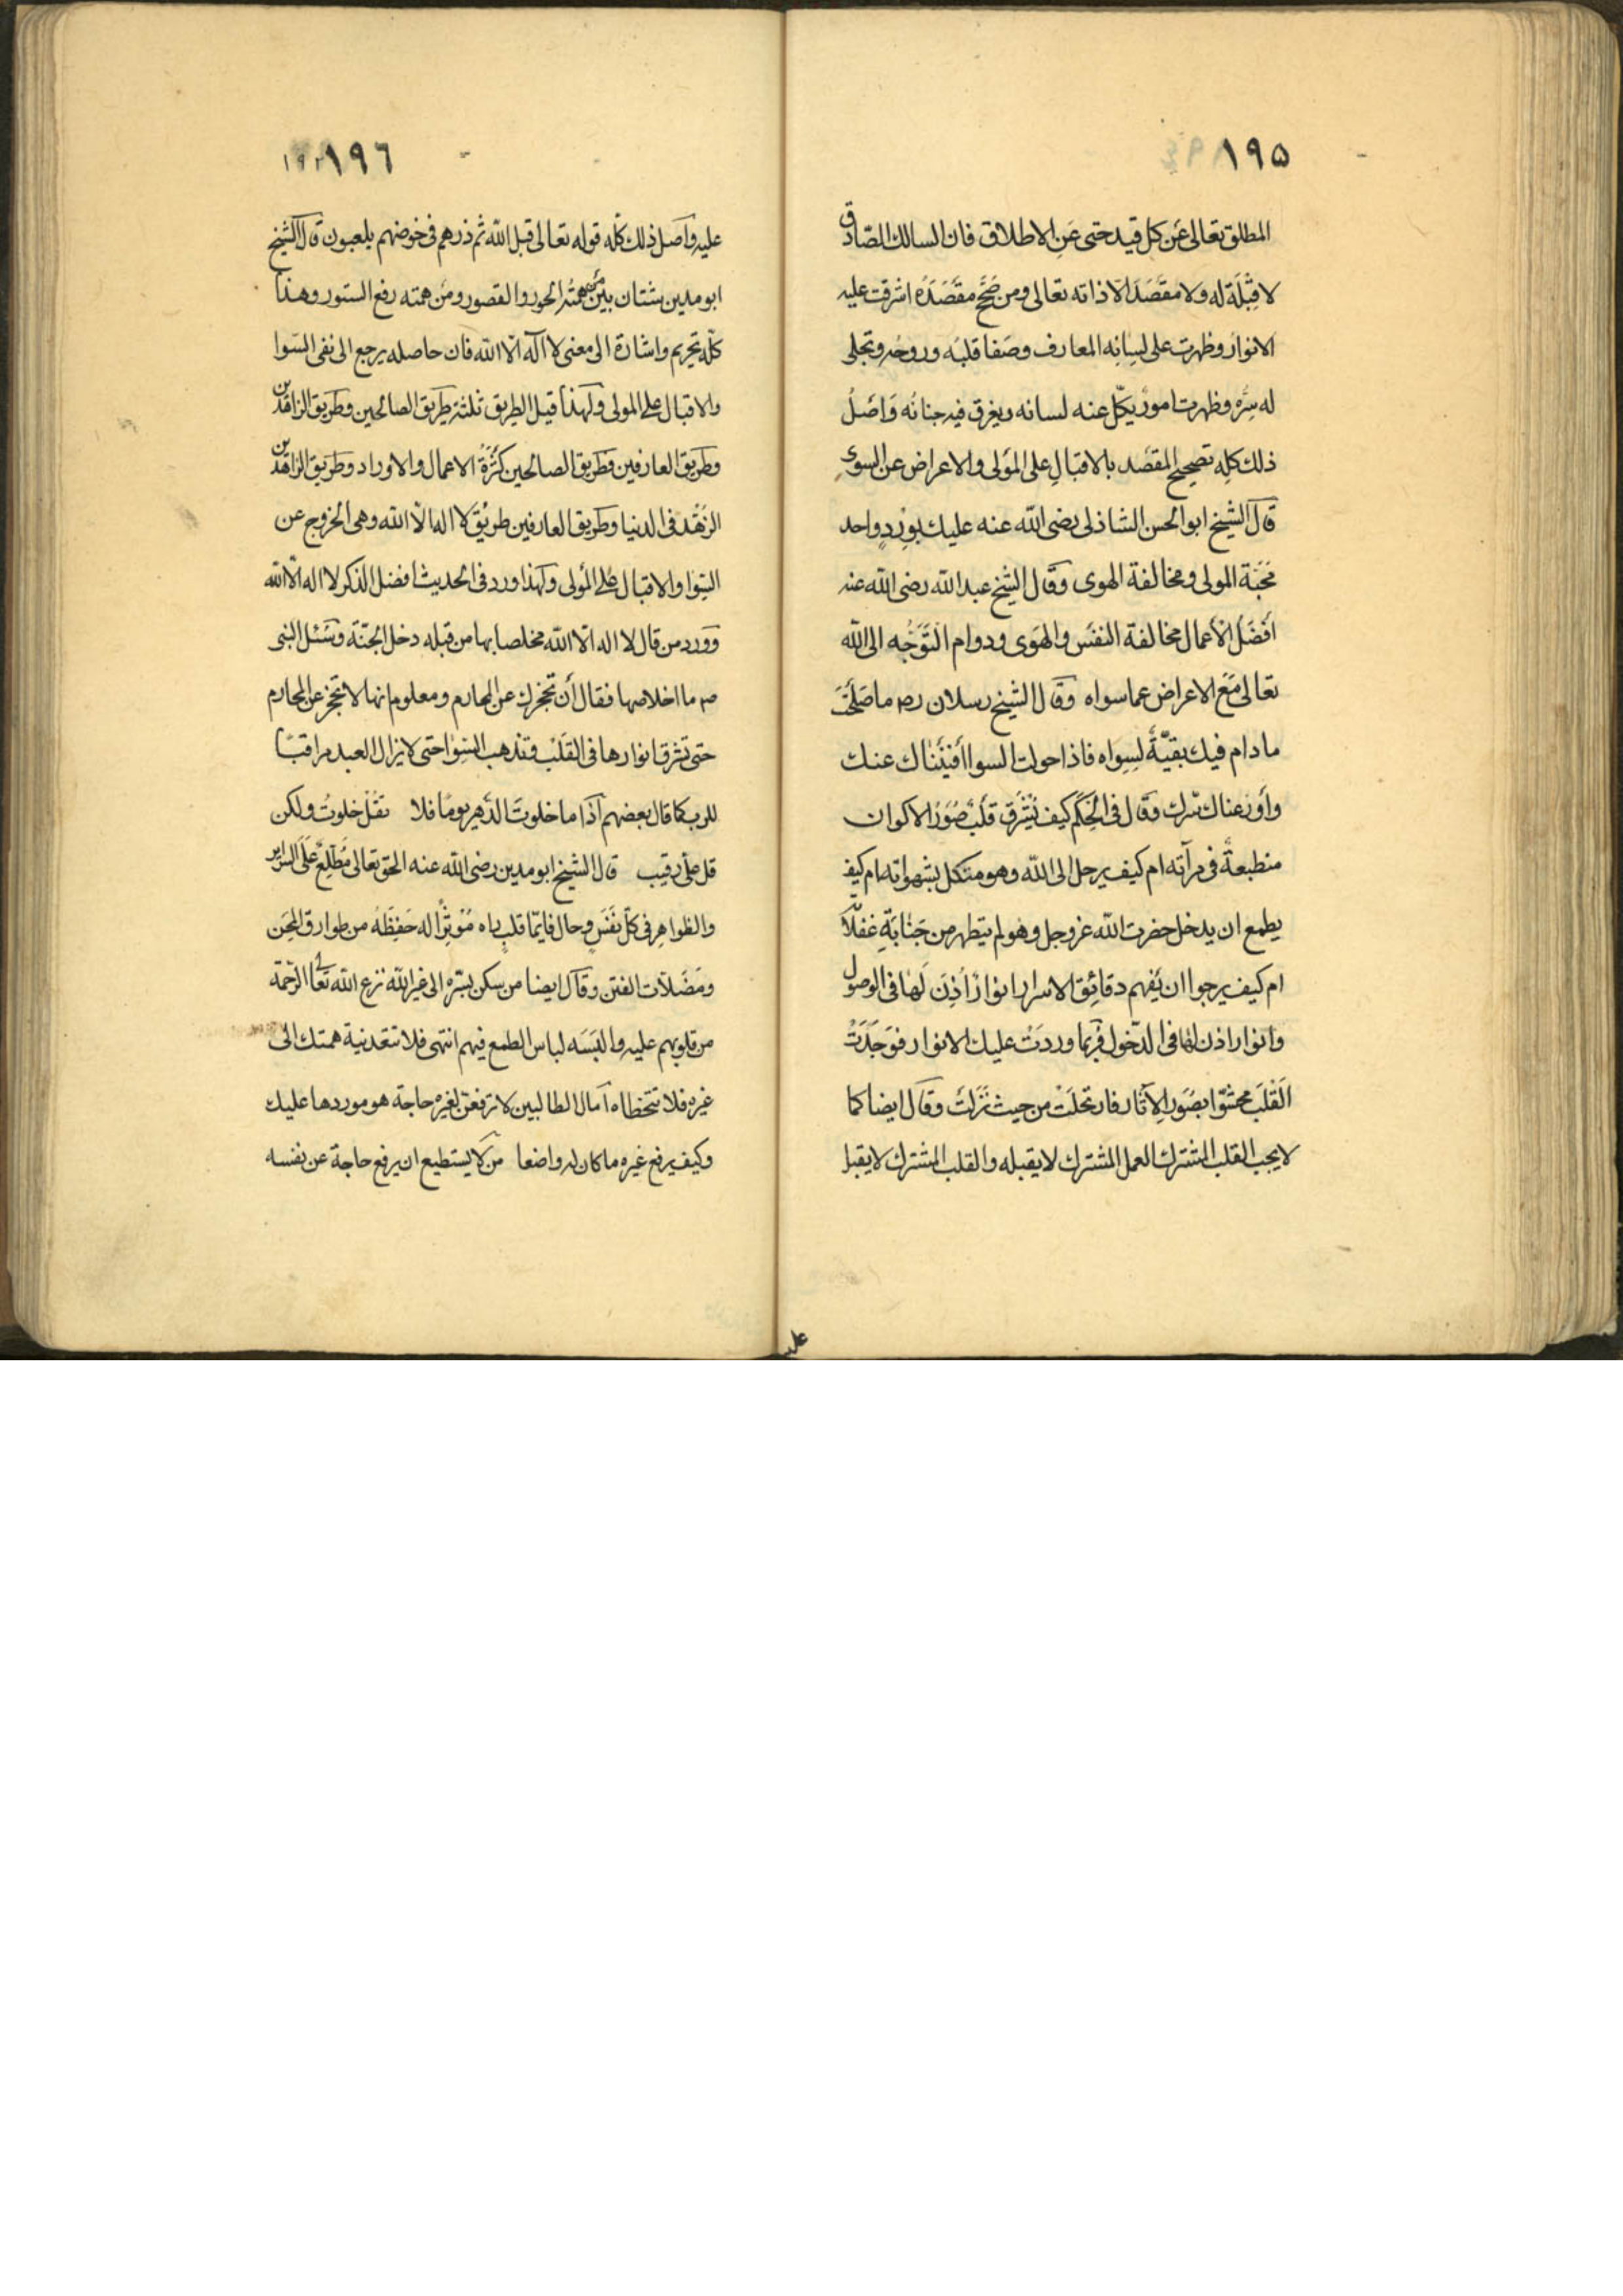 ١٩٥
المطلق تعالى عن كل قيد حتى عن الاطلاق فان السالك الصادق
لا قبلة له ولا مقصد الا ذاته تعالى ومن صح مقصده اشرقت عليه
الانوار وظهرت على لسانه المعارف وصفا قلبه وروحه وتجلى
له سره وظهرت امور يكل عنه لسانه ويغرق فيه جنانه واصل
ذلك كله تصحيح المقصد بالاقبال على المولى والاعراض عن السوى
قال الشيخ ابو الحسن الشاذلى رضى الله عنه عليك بورد واحد
محبة المولى ومخالفة الهوى وقال الشيخ عبد الله رضى الله عنه
افضل الاعمال مخالفة النفس والهوى ودوام التوجه الى الله
تعالى مع الاعراض عما سواه وقال الشيخ رسلان رح ما صلحت
ما دام فيك بقية لسواه فاذا حولت السوا أفنيناك عنك
وأودعناك سرك وقال فى الحكم كيف يشرق قلب صور الاكوان
منطبعة فى مرآته ام كيف يرحل الى الله وهو متكل بشهواته ام كيف
يطمع ان يدخل حضرت الله عز وجل وهو لم يتطهر من جنابة غفلا
ام كيف يرجوا ان يفهم دقائق الاسرار انوار أذن لها فى الوصول
وانوار اذن لها فى الدخول فربما وردت عليك الانوار فوجدت
القلب محشوا بصور الآثار فارتحلت من حيث نزلت وقال ايضا كما
لا يحب القلب المشترك العمل المشترك لا يقبله والقلب المشترك لا يقبل
عليه
١٩٦
عليه واصل ذلك كله قوله تعالى قل الله ثم ذرهم فى خوضهم يلعبون قال الشيخ
ابو مدين شتان بين من همته الحور والقصور ومن همته رفع الستور وهذا
كله تحريم واشارة الى معنى لا اله الا الله فان حاصله يرجع الى نفى السوا
والاقبال على المولى ولهذا قيل الطريق ثلثة طريق الصالحين وطريق الزاهدين
وطريق العارفين وطريق الصالحين كثرة الاعمال والاوراد وطريق الزاهدين
الزهد فى الدنيا وطريق العارفين طريق لا اله الا الله وهى الخروج عن
السوا والاقبال على المولى ولهذا ورد فى الحديث افضل الذكر لا اله الا الله
وورد من قال لا اله الا الله مخلصا بها من قبله دخل الجنة وسئل النبى
صم ما اخلاصها فقال أن تحجزك عن المحارم ومعلوم انها لا تحجز عن المحارم
حتى تشرق انوارها فى القلب وتذهب السوا حتى لا يزال العبد مراقبا
للرب كما قال بعضهم اذا ما خلوت الدهر يوما فلا تقل خلوت ولكن
قل على رقيب قال الشيخ ابو مدين رضى الله عنه الحق تعالى مطلع على السراير
والظواهر فى كل نفس وحال فايما قلب رآه مؤثرا له حفظه من طوارق المحن
ومضلات الفتن وقال ايضا من سكن بسره الى غير الله نزع الله تعالى الرحمة
من قلوبهم عليه والبسه لباس الطمع فيهم انتهى فلا تتعد نية همتك الى
غيره فلا تتخطاه آمال الطالبين لا ترفعن لغيره حاجة هو موردها عليك
وكيف يرفع غيره ما كان له واضعا من لا يستطيع ان يرفع حاجة عن نفسه